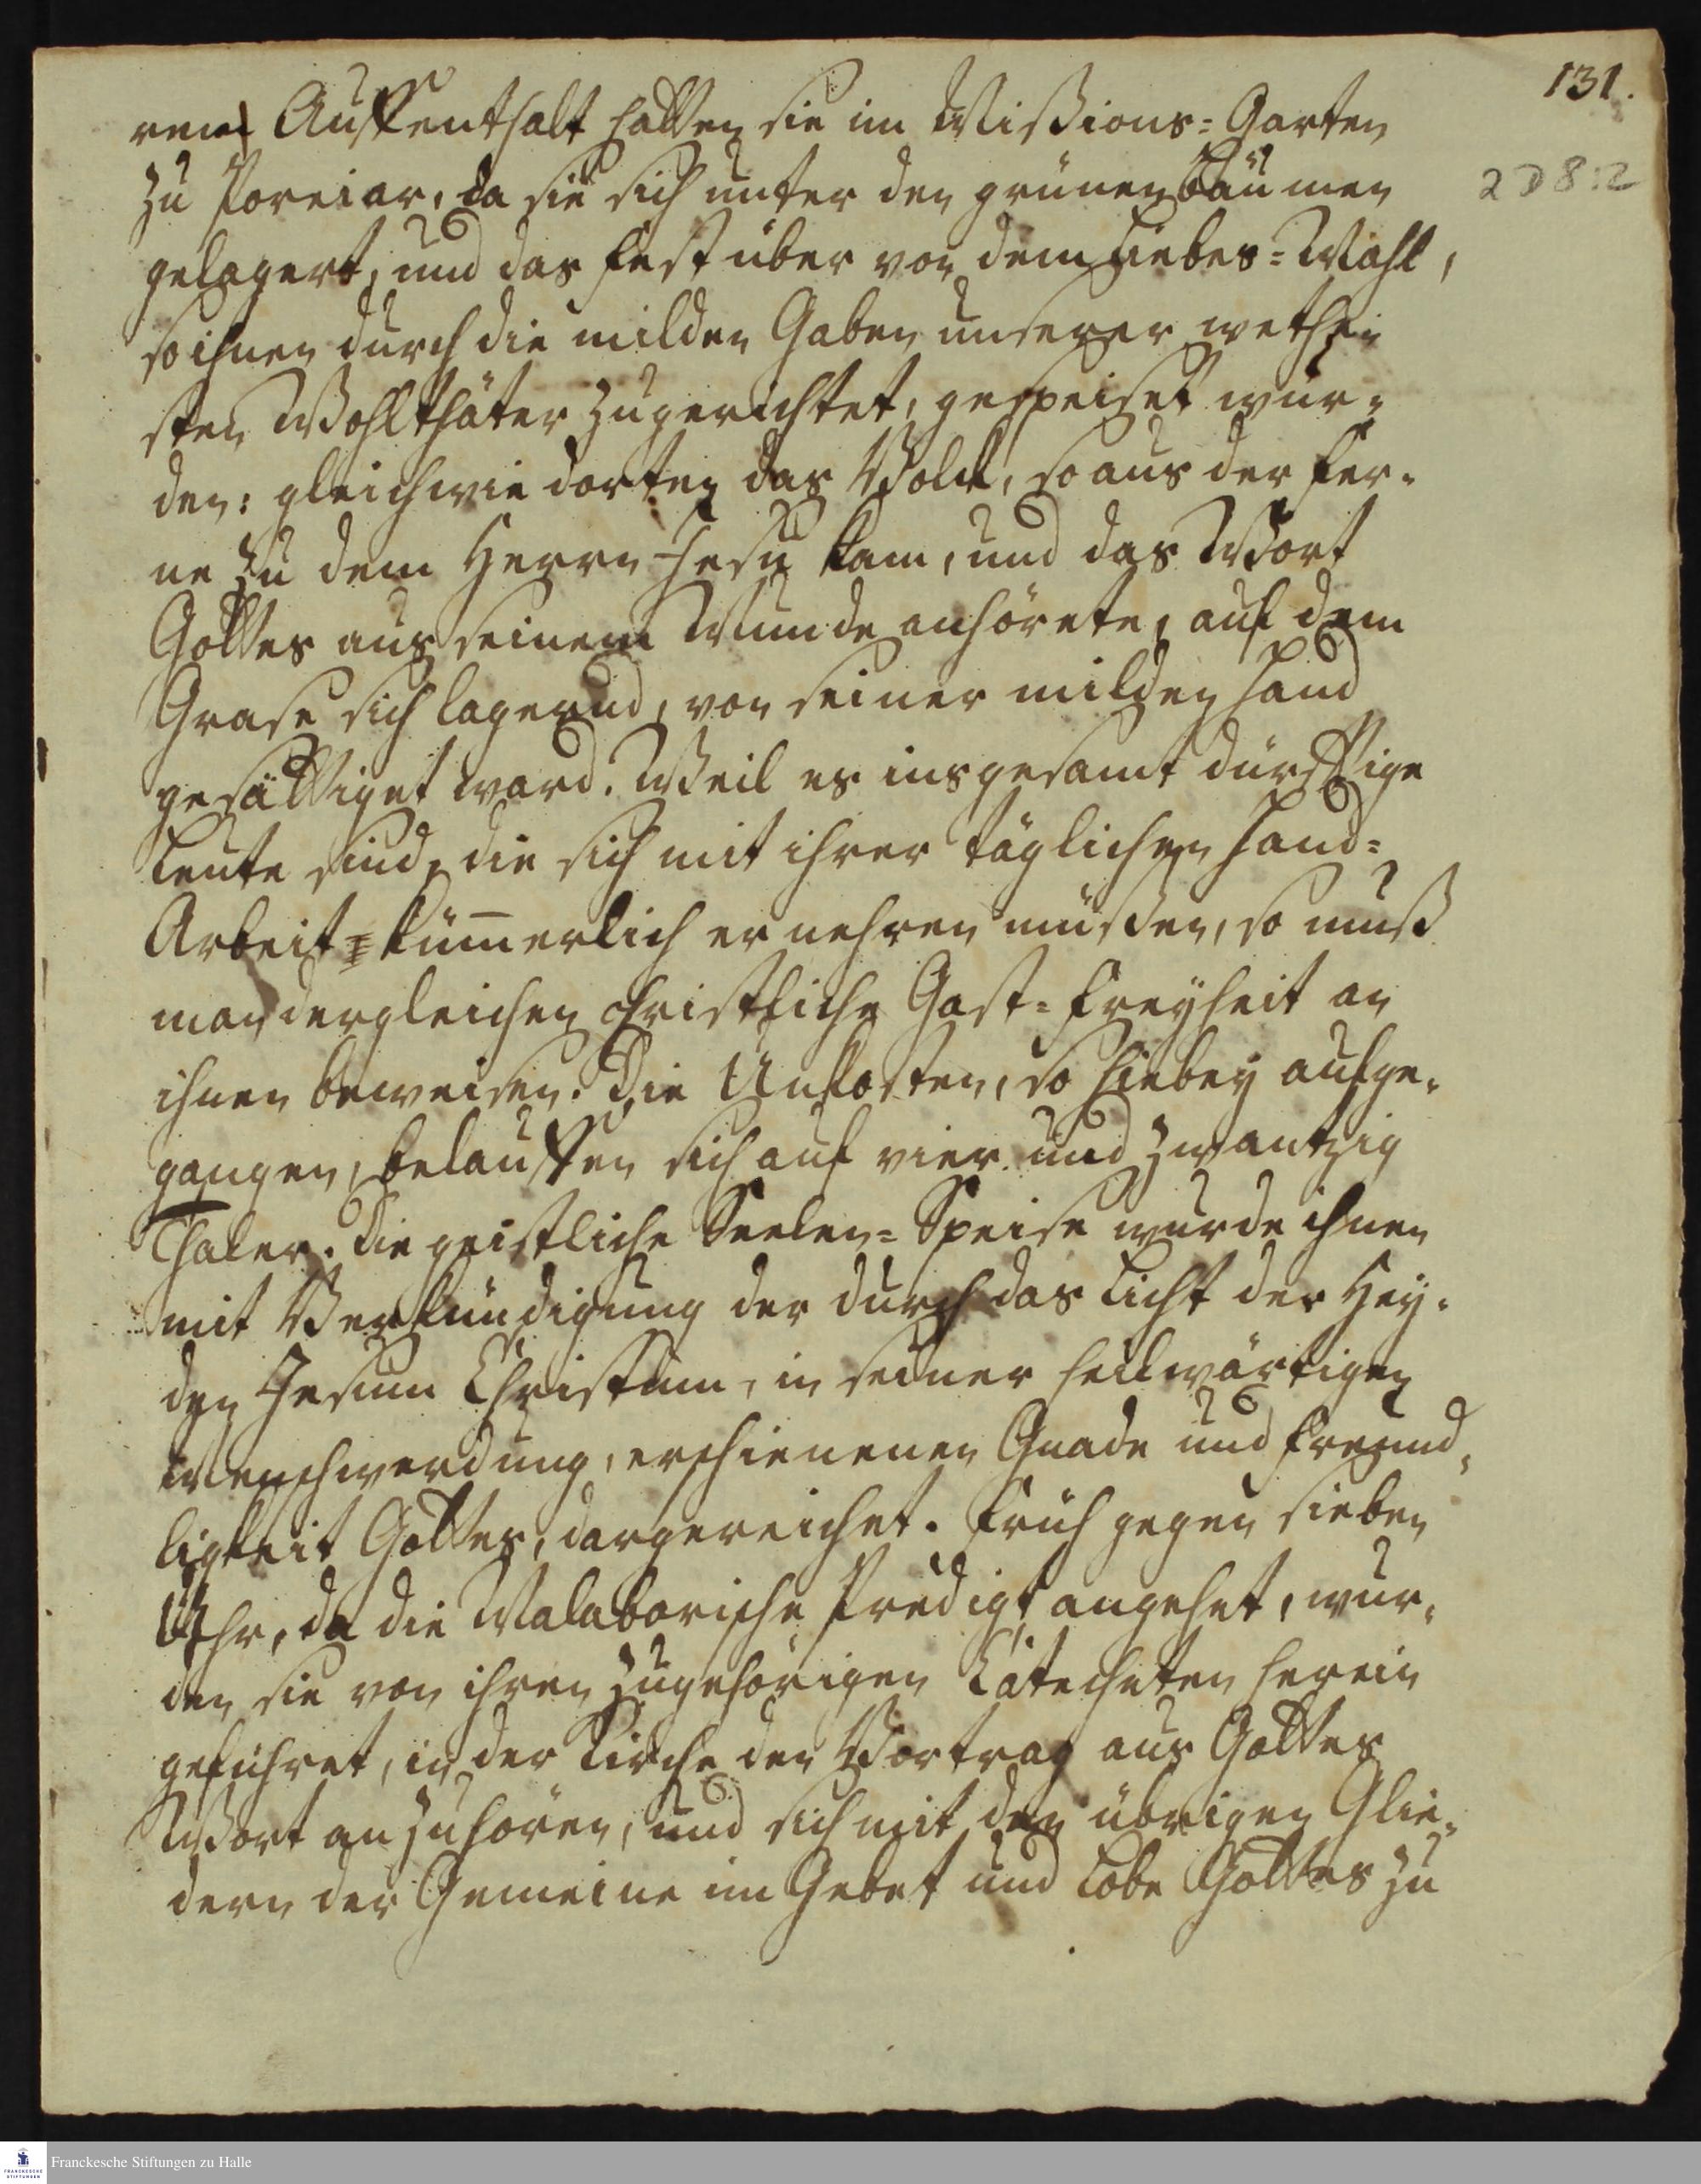 131.
2 D 8:2
ren Auffenthalt hatten sie im Mißions=Garten
zu Poreiar, da sie sich unter den grünen Bäumen
gelagert, und das Fest über von dem Liebes=Mahl,
so ihnen durch die milden Gaben unserer werthe
sten Wohlthäter zugerichtet, gespeiset wur=
den: gleichwie dorten das Volck, so aus der Fer=
ne zu dem Herrn Jesu kam, und das Wort
Gottes aus seinem Munde anhörete, auf dem
Grase sich lagernd, von seiner milden Hand
gesättiget ward. Weil es insgesamt dürfftige
Leute sind, die sich mit ihrer täglichen Hand=
Arbeit kümerlich ernehren müßen, so muß
man dergleichen christliche Gast=Freyheit an
ihnen beweisen. Die Unkosten, so hiebey aufge=
gangen, belauffen sich auf vier und zwantzig
Thaler. Die geistliche Seelen=Speise wurde ihnen
mit Verkündigung der durch das Licht der Hey=
den Jesum Christum, in seiner heilwärtigen
Menschwerdung, erschienenen Gnade und Freund=
ligkeit Gottes, dargereichet. Früh gegen sieben
Uhr, da die Malabarische Predigt angehet, wur=
den sie von ihren zugehörigen Catecheten herein
geführet, in der Kirche den Vortrag aus Gottes
Wort anzuhören, und sich mit den übrigen Glie=
dern der Gemeine im Gebet und Lobe Gottes zu
Franckesche Stiftungen zu Halle
FRANCKESCHE
STIFTUNGEN